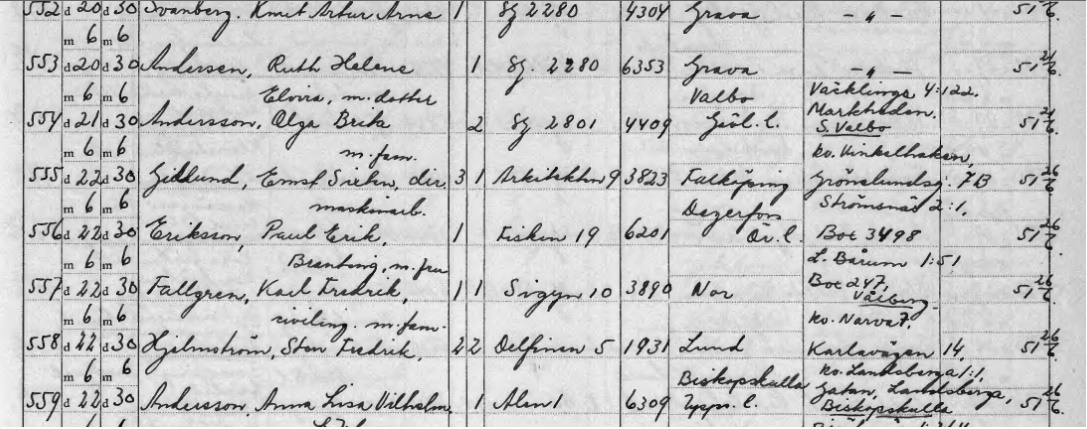 552 d 20 d 30 Svanberg, Knut Artur Arne 1 Sg 2280 4304 Grava — „ — 51 26/6.
m 6 m 6
553 d 20 d 30 Andersen, Ruth Helene 1 Sg. 2280 6353 Grava — „ — 51 26/6.
m 6 m 6 Elvira, m. dotter Valbo Väcklinge 4:122.
554 d 21 d 30 Andersson, Olga Brita 2 Sg 2801 4409 Gävl. l. Markheden. S. Valbo 51 21/6.
m 6 m 6 m. fam. ko. Vinkelhaken,
555 d 22 d 30 Gidlund, Ernst Sixten, dir. 3 1 Arkitekten 9 3823 Falköping Grönelundsg. 7B 51 26/6.
m 6 m 6 maskinarb. Degerfors Strömsnäs 2:1,
556 d 22 d 30 Eriksson, Paul Erik, 1 Fisken 19 6201 Ör. l. Box 3498 51 26/6.
m 6 m 6 Branting, m. fru L. Bärum 1:51
557 d 22 d 30 Fallgren, Karl Fredrik, 1 1 Sigyn 10 3890 Nor Box 247, Vålberg 51 26/6.
m 6 m 6 civiling. m. fam. ko. Narva 7.
558 d 22 d 30 Hjelmström, Sten Fredrik, 2 2 Delfinen 5 1931 Lund Karlavägen 14, 51 26/6.
m 6 m 6 Biskopskulla ko. Landsberga 1:1,
559 d 22 d 30 Andersson, Anna Lisa Vilhelm. 1 Alen 1 6309 Upps. l. Gatan, Landsberga, Biskopskulla 51 26/6.